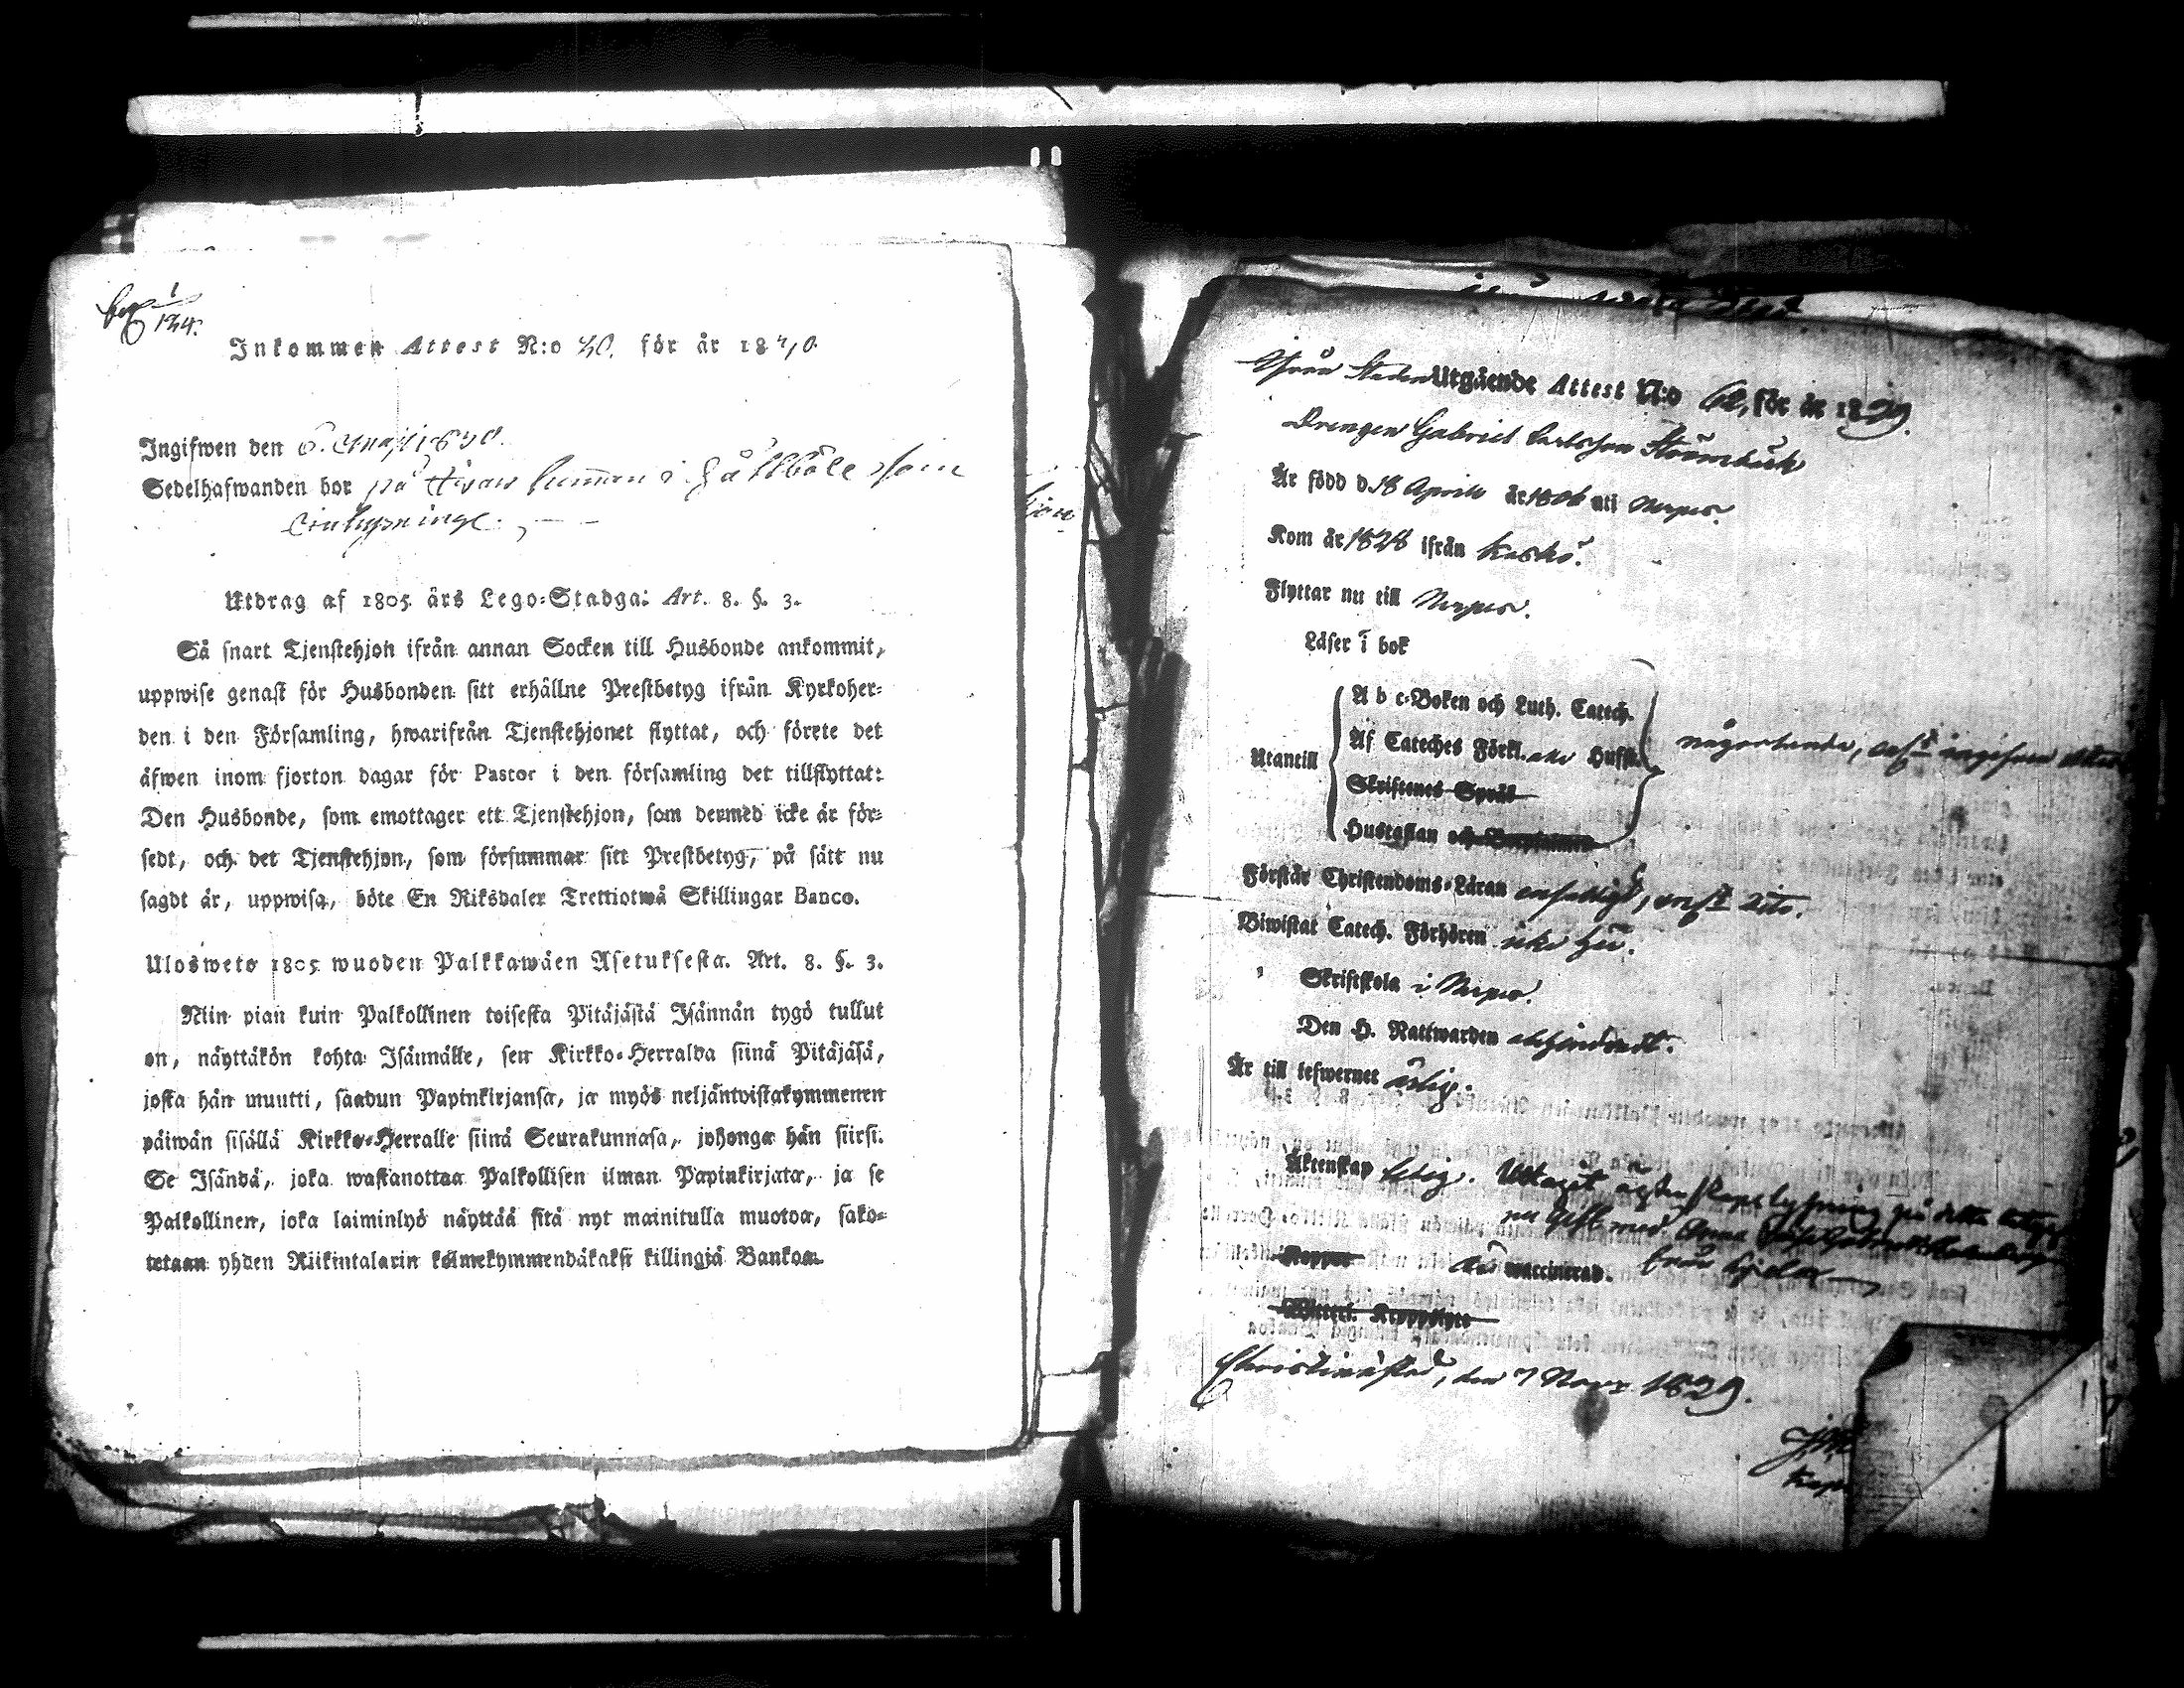 124.
Inkommen Attest N:o 40. för år 1840.
Ingifwen den 6. Maji 1840.
Sedelhafwanden bor på i Gåttböle som
Inhysninge.
Utdrag af 1805 års Lego=Stadga: Art. 8. §. 3.
Så snart Tjenstehjon ifrån annan Socken till Husbonde ankommit,
uppwise genast för Husbonden sitt erhållne Prestbetyg ifrån Kyrkoher=
den i den Församling, hwarifrån Tjenstehjonet flyttat, och förete det
äfwen inom fjorton dagar för Pastor i den församling det tillflyttat:
Den Husbonde, som emottager ett Tjenstehjon, som dermed icke är för=
sedt, och det Tjenstehjon, som försummar sitt Prestbetyg, på sätt nu
sagdt är, uppwisa, böte En Riksdaler Trettiotwå Skillingar Banco.
Ulosweto 1805 wuoden Palkkawäen Asetuksesta. Art. 8. §. 3.
Niin pian kuin Palkollinen toisesta Pitäjästä Isännän tygö tullut
on, näyttäkön kohta Isännälle, sen Kirkko=Herralda siinä Pitäjäsä,
josta hän muutti, saadun Papinkirjansa, ja myös neljäntoistakymmenen
päiwän sisällä Kirkko=Herralle siinä Seurakunnasa, johonga hän siirsi.
Se Isändä, joka wastanottaa Palkollisen ilman Papinkirjata, ja se
Palkollinen, joka laiminlyö näyttää sitä nyt mainitulla muotoa, sako=
tetaan yhden Riikintalarin kolmekymmendäkaksi killingiä Bankoa.
Utgående Attest N:o 62, för år 1839.
Drengen Gabriel Carlsson Strömbäck
Är född d. 18 April år 1806 uti Nerpes.
Kom år 1828 ifrån Kaskö.
Flyttar nu till Nerpes.
Läser i bok
Utantill
A b c=Boken och Luth. Catech.
Af Cateches Förkl. Hussl.
någorlunda,
Skriftenes Språk
Hustaflan och
Förstår Christendoms=Läran enfaldigt, dito.
Biwistat Catech. Förhören icke här.
Skriftskola i Nerpes.
Den H. Nattwarden
Är till lefwernet ärlig.
Äktenskap ledig. Uttagit lysning på detta betyg
nu gift med Anna
Koppor waccinerad.
Wittert. Krypplyte
Christinæstad, den 7 Novr 1839.